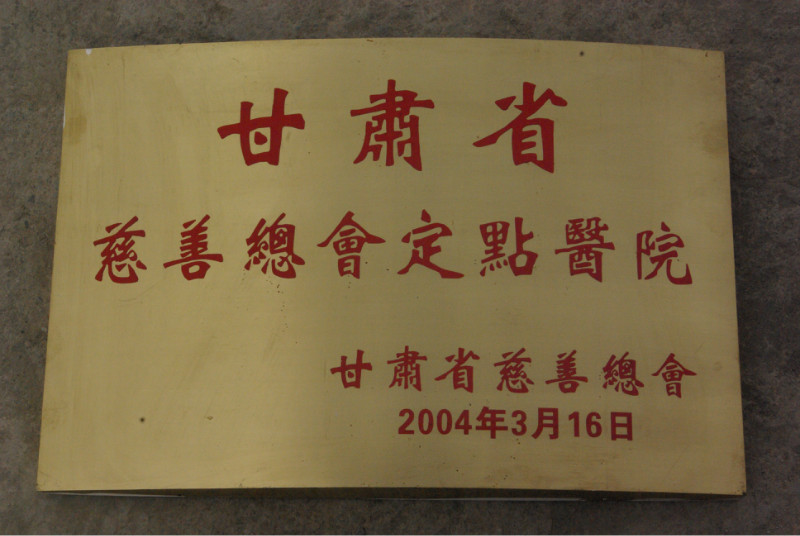 甘肅省
慈善總會定點醫院
甘肅省慈善總會
2004年3月16日